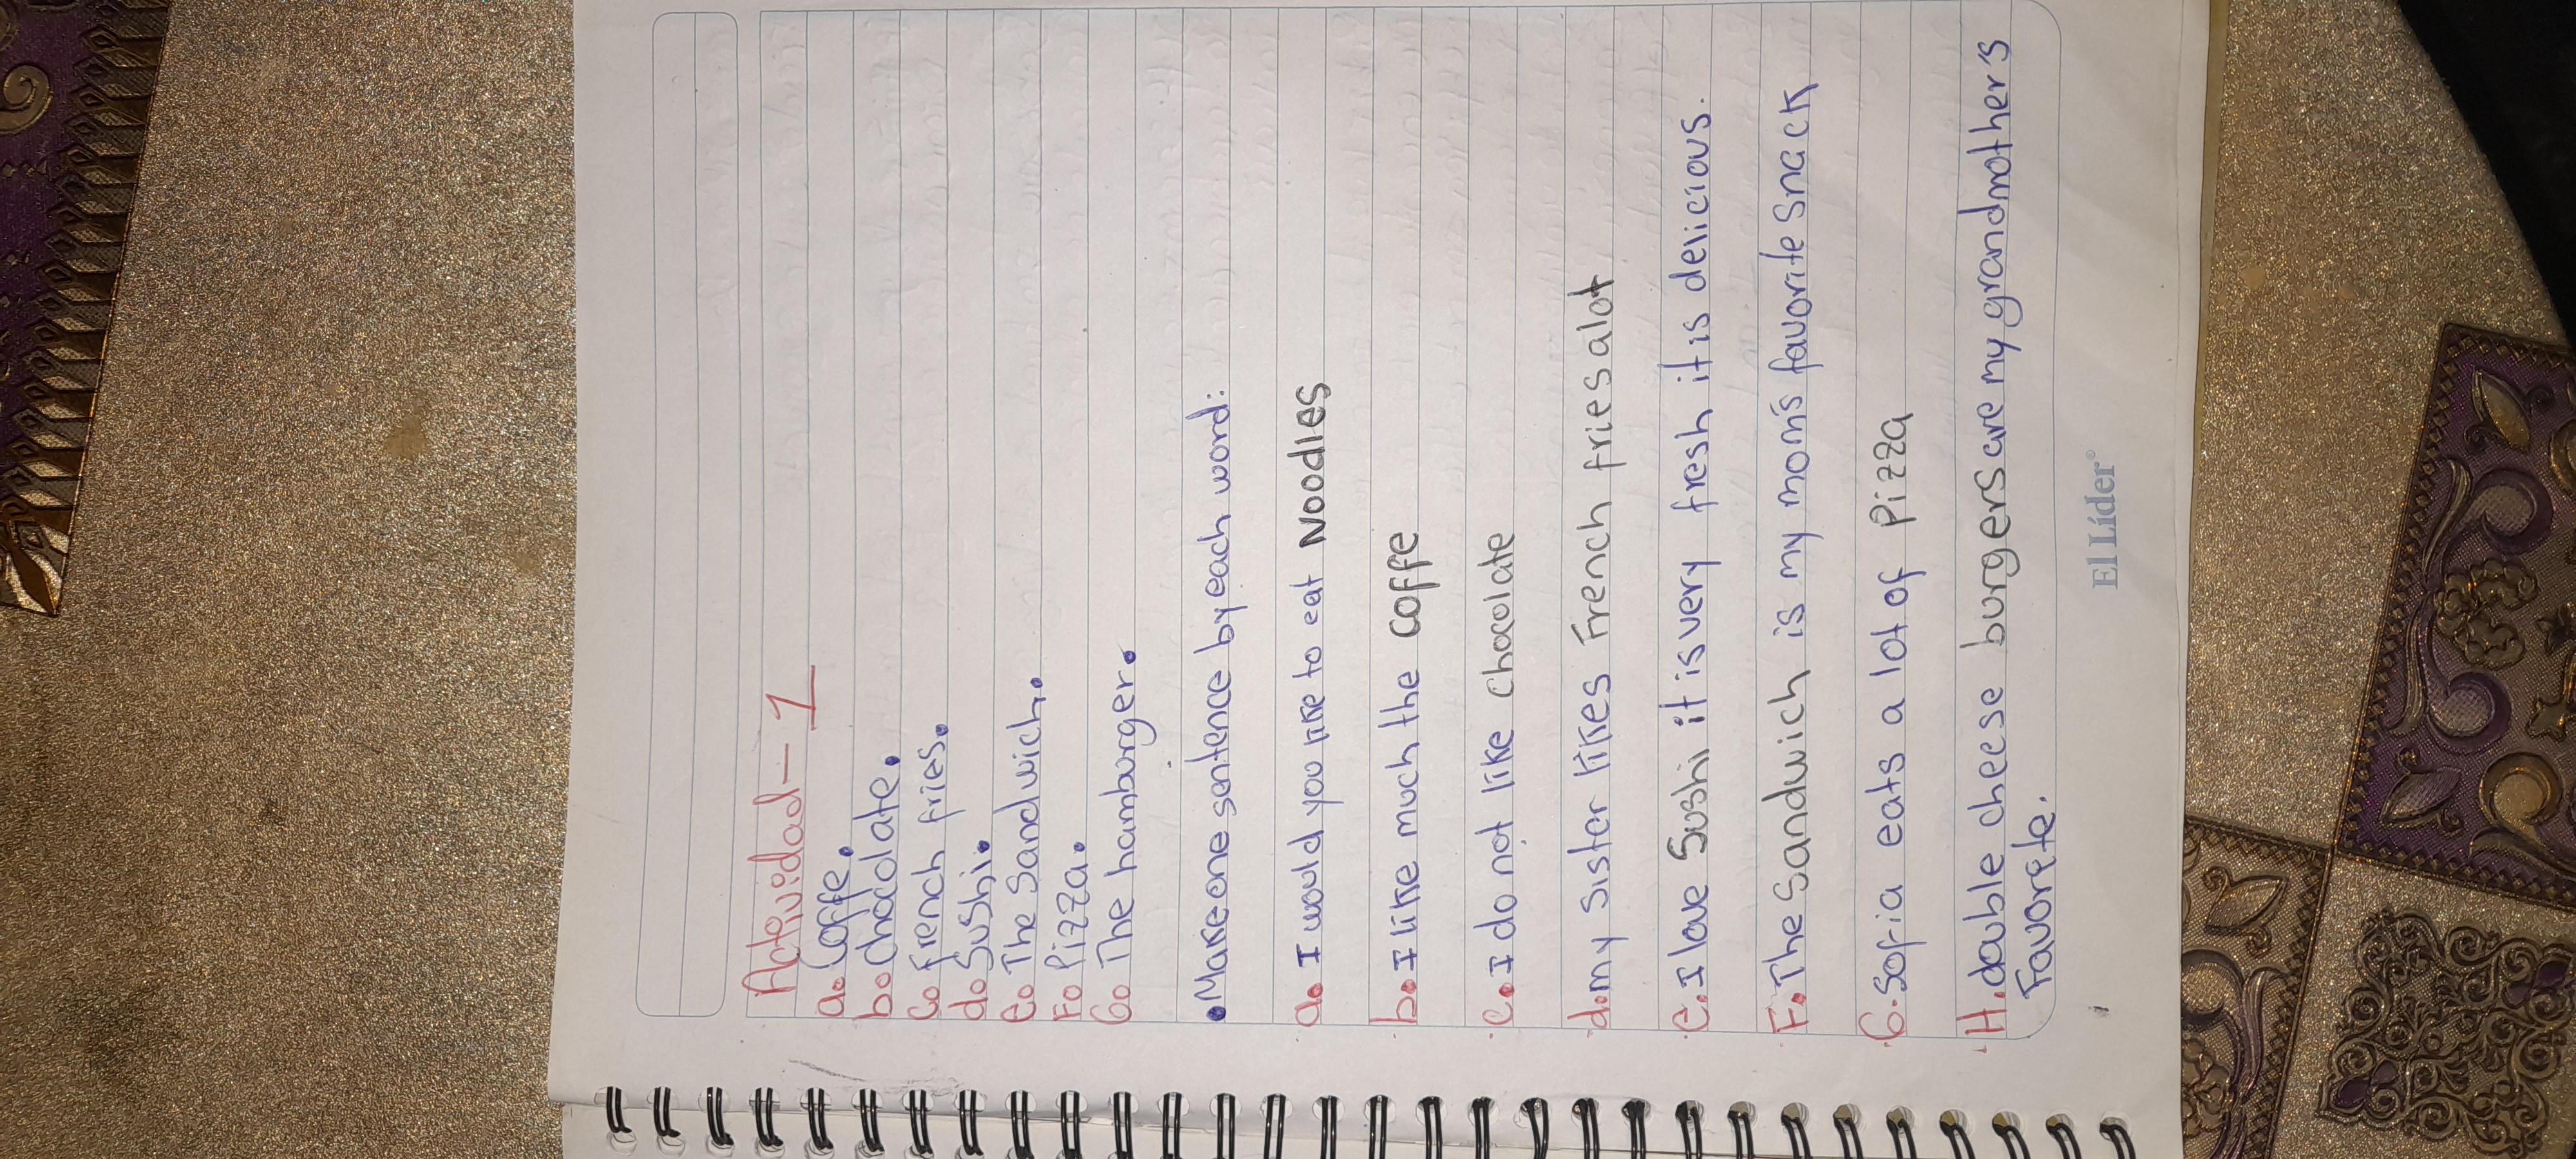 Actividad - 1
a. Coffe.
b. chocolate.
C. French fries.
d. Sushi.
e. The Sandwich.
F. Pizza.
G. The hamburger.
• Make one sentence by each word:
a. I would you like to eat Noodles
b. I like much the coffe
c. I do not like chocolate
d. my sister likes French fries alot
e. I love Sushi it is very fresh it is delicious.
F. The Sandwich is my mom's favorite snack
G. Sofia eats a lot of Pizza
H. double cheese burgers are my grandmothers
Favorite.
El Líder